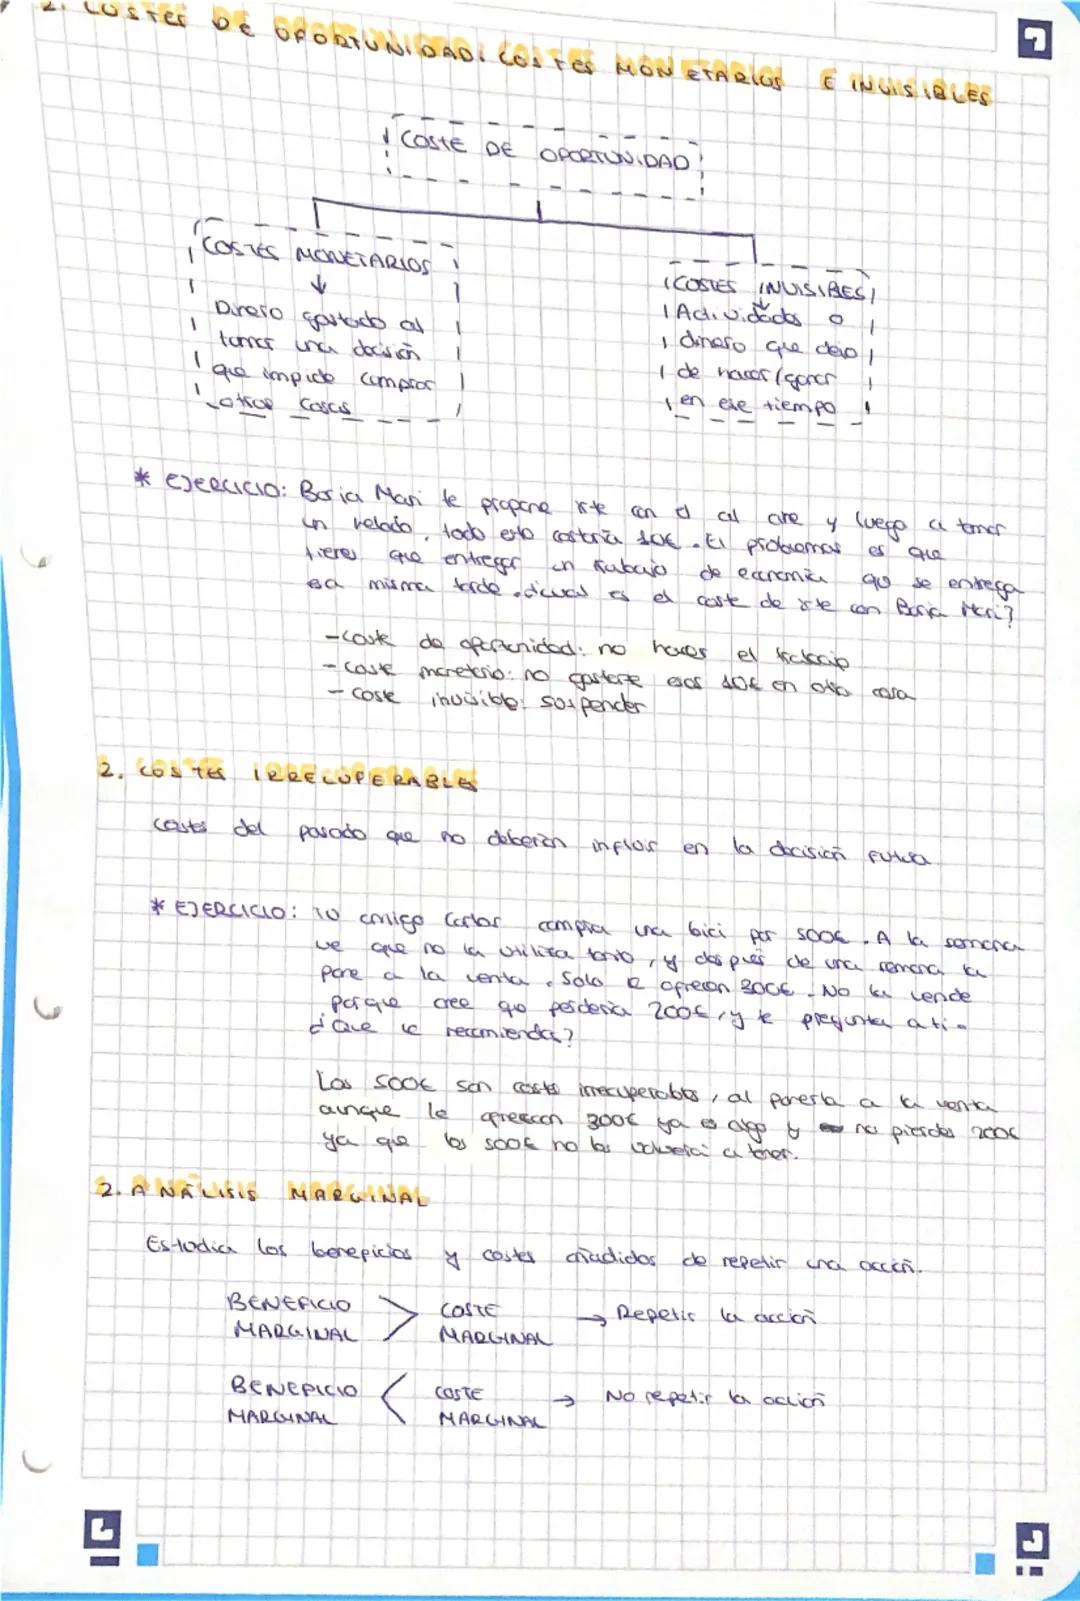 2. COSTES DE OPORTUNIDAD: COSTES MONETARIOS E INVISIBLES
COSTE DE OPORTUNIDAD
COSTES MONETARIOS
↓
Dinero gastado al
tomar una decisión
que impide comprar
otras cosas
COSTES INVISIBLES
Actividades o
dinero que dejo
de hacer/ganar
en ese tiempo
* EJERCICIO: Borja Mari te propone irte con él al cine y luego a tomar
un helado, todo esto costaría 10€. El problemas es que
tienes que entregar un trabajo de economía que se entrega
esa misma tarde. ¿Cual es el coste de irte con Borja Mari?
- Coste de oportunidad: no haces el trabajo
- Coste monetario: no gastarte esos 10€ en otra cosa
- Coste invisible: suspender
2. COSTES IRRECUPERABLES
Costes del pasado que no deberían influir en la decisión futura
* EJERCICIO: Tu amigo Carlos compra una bici por 500€. A la semana
ve que no la utiliza tanto, y después de una semana la
pone a la venta. Solo le ofrecen 300€. No la vende
porque cree que perdería 200€, y te pregunta a ti.
¿Que le recomiendas?
Los 500€ son costes irrecuperables, al ponerla a la venta
aunque le ofrezcan 300€ ya es algo y no pierdes 200€
ya que los 500€ no los volverá a tener.
2. ANÁLISIS MARGINAL
Estudia los beneficios y costes añadidos de repetir una acción.
BENEFICIO MARGINAL > COSTE MARGINAL → Repetir la acción
BENEFICIO MARGINAL < COSTE MARGINAL → No repetir la acción